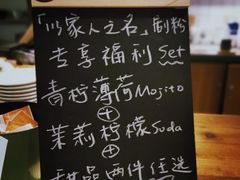 「以家人之名」刷粉
专享福利Set
青柠薄荷Mojito
+
茉莉柠檬Suda
+
甜品两件任选